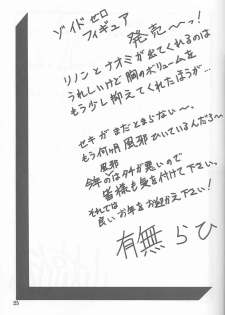 ゾイドゼロ
フィギュア
発売〜っ!
リノンとナオミが出てくれるのは
うれしいけど胸のボリュームを
もう少し抑えてくれたほうが…
セキがまだとまらない〜
もう何ヶ月風邪ひいているんだろ〜
今年の風邪はタチが悪いので
皆様も気を付けて下さい。
それでは
良いお年をお迎え下さい!
有無らひ
25